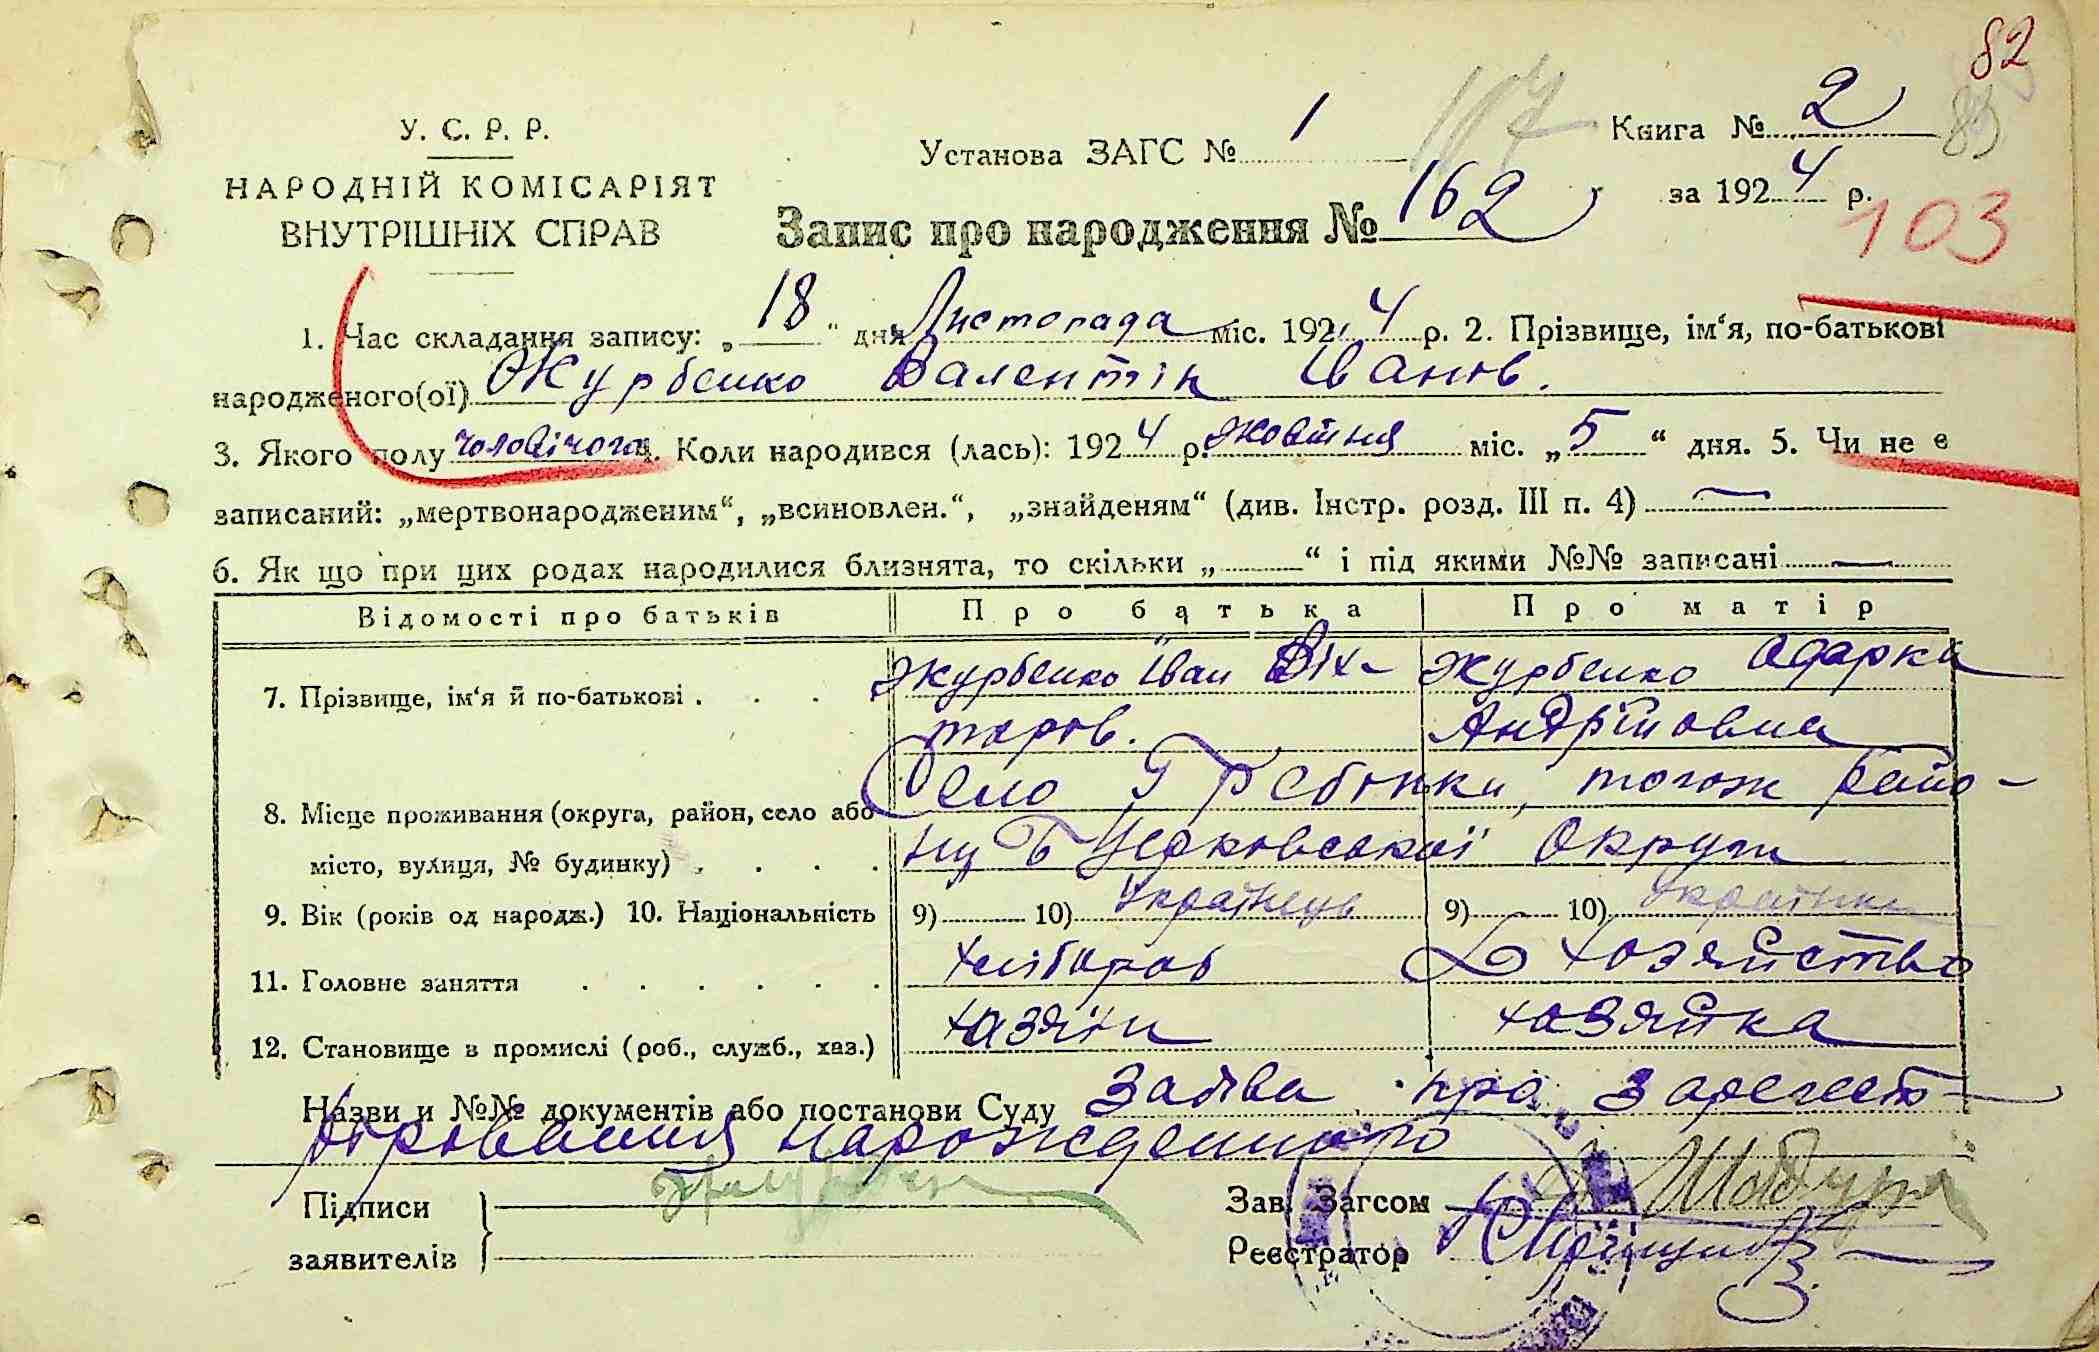 82
83
107
У. С. Р. Р.
НАРОДНІЙ КОМІСАРІЯТ
ВНУТРІШНІХ СПРАВ
Установа ЗАГС № 1
Книга № 2
за 1924 р.
Запис про народження № 162
103
1. Час складання запису: „18" дня Листопада міс. 1924 р. 2. Прізвище, ім'я, по-батькові
народженого(ої) Журбенко Валентін Іванов.
3. Якого полу чоловічого 4. Коли народився (лась): 1924 р. жовтня міс. „5" дня. 5. Чи не є
записаний: „мертвонародженим", „всиновлен.", „знайденям" (див. Інстр. розд. III п. 4) —
6. Як що при цих родах народилися близнята, то скільки „ " і під якими №№ записані —
Відомості про батьків Про батька Про матір
7. Прізвище, ім'я й по-батькові . . . Журбенко Іван Вік- Журбенко Одарка
торов. Андрійовна
8. Місце проживання (округа, район, село або Село Гребінки, тогож райо-
місто, вулиця, № будинку) . . . . ну Б Церковської Округи
9. Вік (років од народж.) 10. Національність 9) 10) Українець 9) 10) Українка
11. Головне заняття . . . . . . хлібороб хозяйство
12. Становище в промислі (роб., служб., хаз.) хазяін хозяйка
Назви и №№ документів або постанови Суду Заява про зарегест-
рировання нарожденного
Підписи
заявителів
Зав. Загсом
Реєстратор